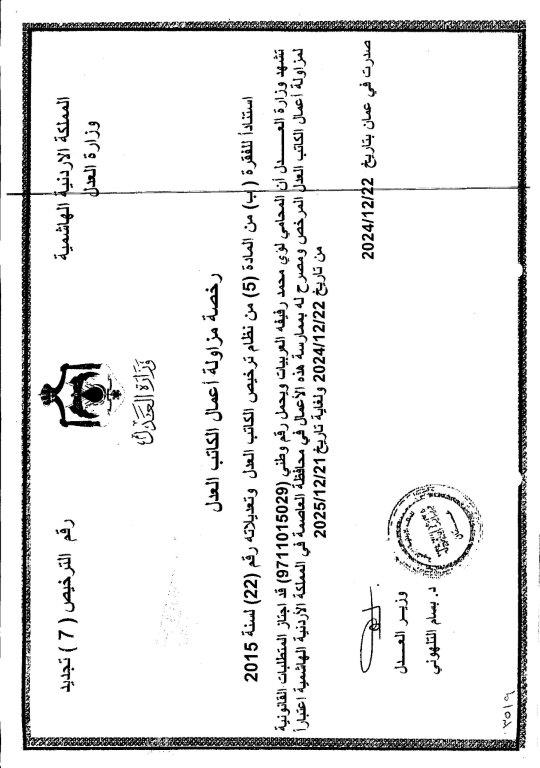 المملكة الاردنية الهاشمية
وزارة العدل
وزارة العدل
رقم الترخيص ( 7 ) تجديد
رخصة مزاولة أعمال الكاتب العدل
استناداً للفقرة (ب) من المادة (5) من نظام ترخيص الكاتب العدل وتعديلاته رقم (22) لسنة 2015
تشهد وزارة العــــدل أن المحامي لؤي محمد رفيفه العربيات ويحمل رقم وطني (9711015029) قد اجتاز المتطلبات القانونية
لمزاولة أعمال الكاتب العدل المرخص ومصرح له بممارسة هذه الأعمال في محافظة العاصمة في المملكة الأردنية الهاشمية اعتباراً
من تاريخ 2024/12/22 ولغاية تاريخ 2025/12/21
صدرت في عمان بتاريخ 2024/12/22
وزيـر العــدل
د. بسام التلهوني